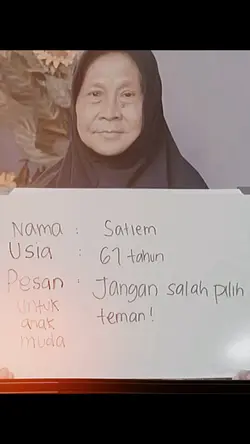 Nama : Satiem
Usia : 67 tahun
Pesan : Jangan salah pilih
untuk teman!
anak
muda